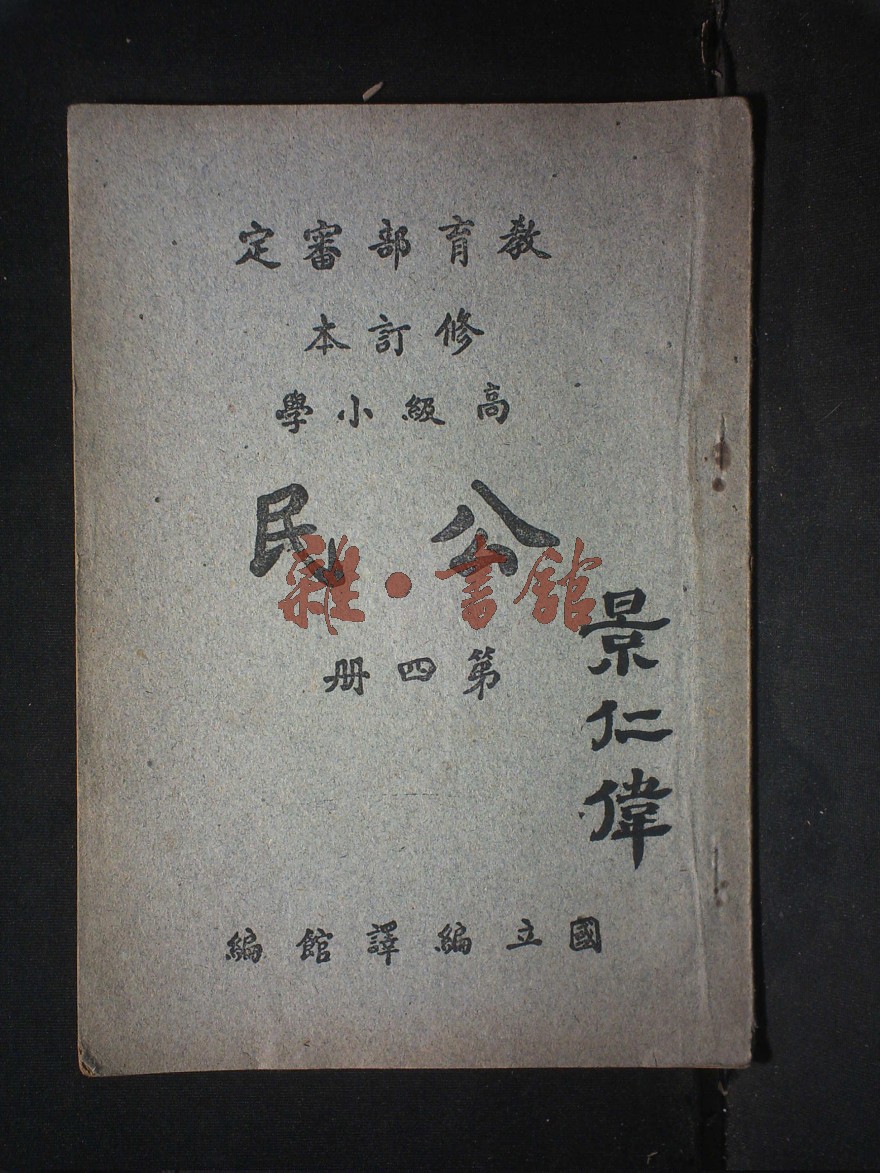 教育部審定
修訂本
高級小學
公民
雜·書館
第四册
景仁偉
國立編譯館編